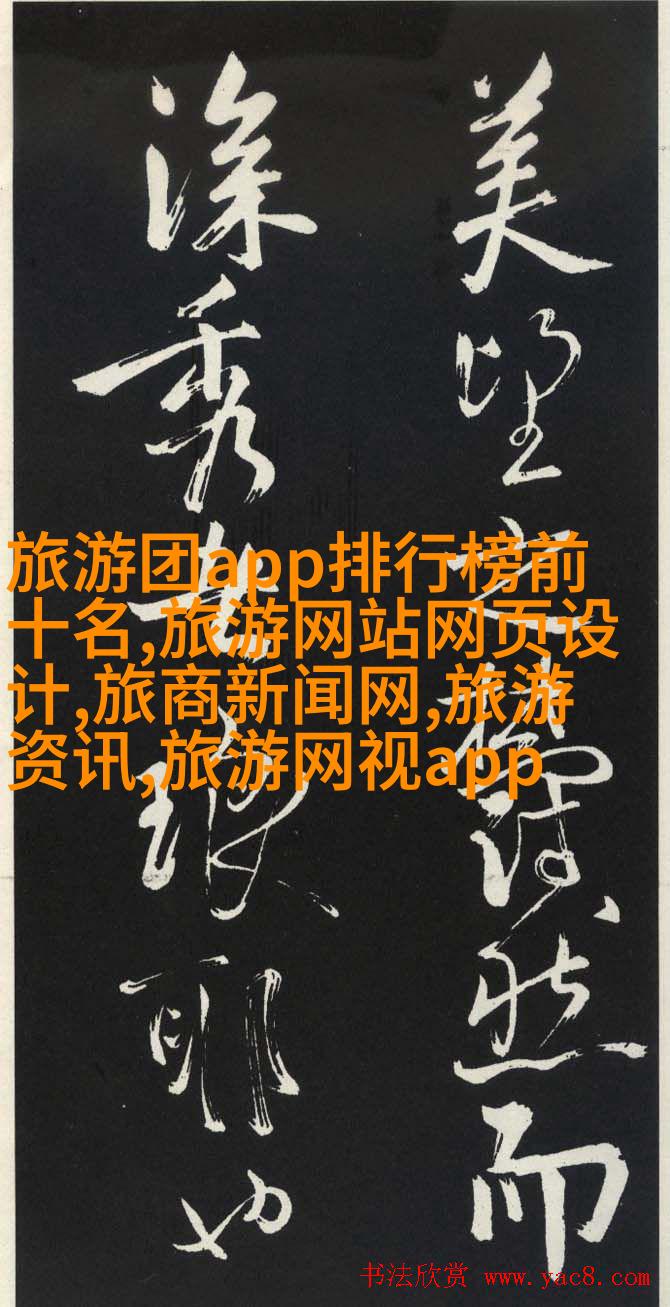 美望之蔚然而
深秀者琅耶也
旅游团app排行榜前
十名,旅游网站网页设
计,旅商新闻网,旅游
资讯,旅游网视app
书法欣赏 www.yac8.com